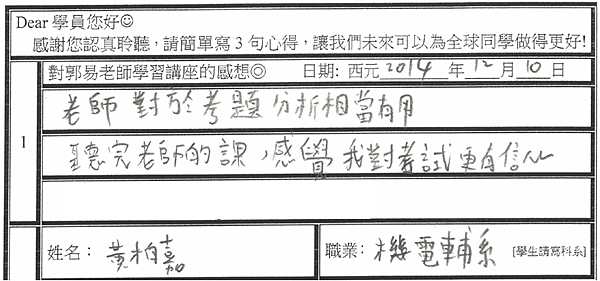 Dear 學員您好☺
感謝您認真聆聽，請簡單寫 3 句心得，讓我們未來可以為全球同學做得更好!
對郭易老師學習講座的感想◎ 日期: 西元 2014 年 12 月 10 日
1
老師對於考題分析相當有用
聽完老師的課，感覺我對考試更有信心
姓名： 黃柏嘉 職業： 機電輔系 [學生請寫科系]